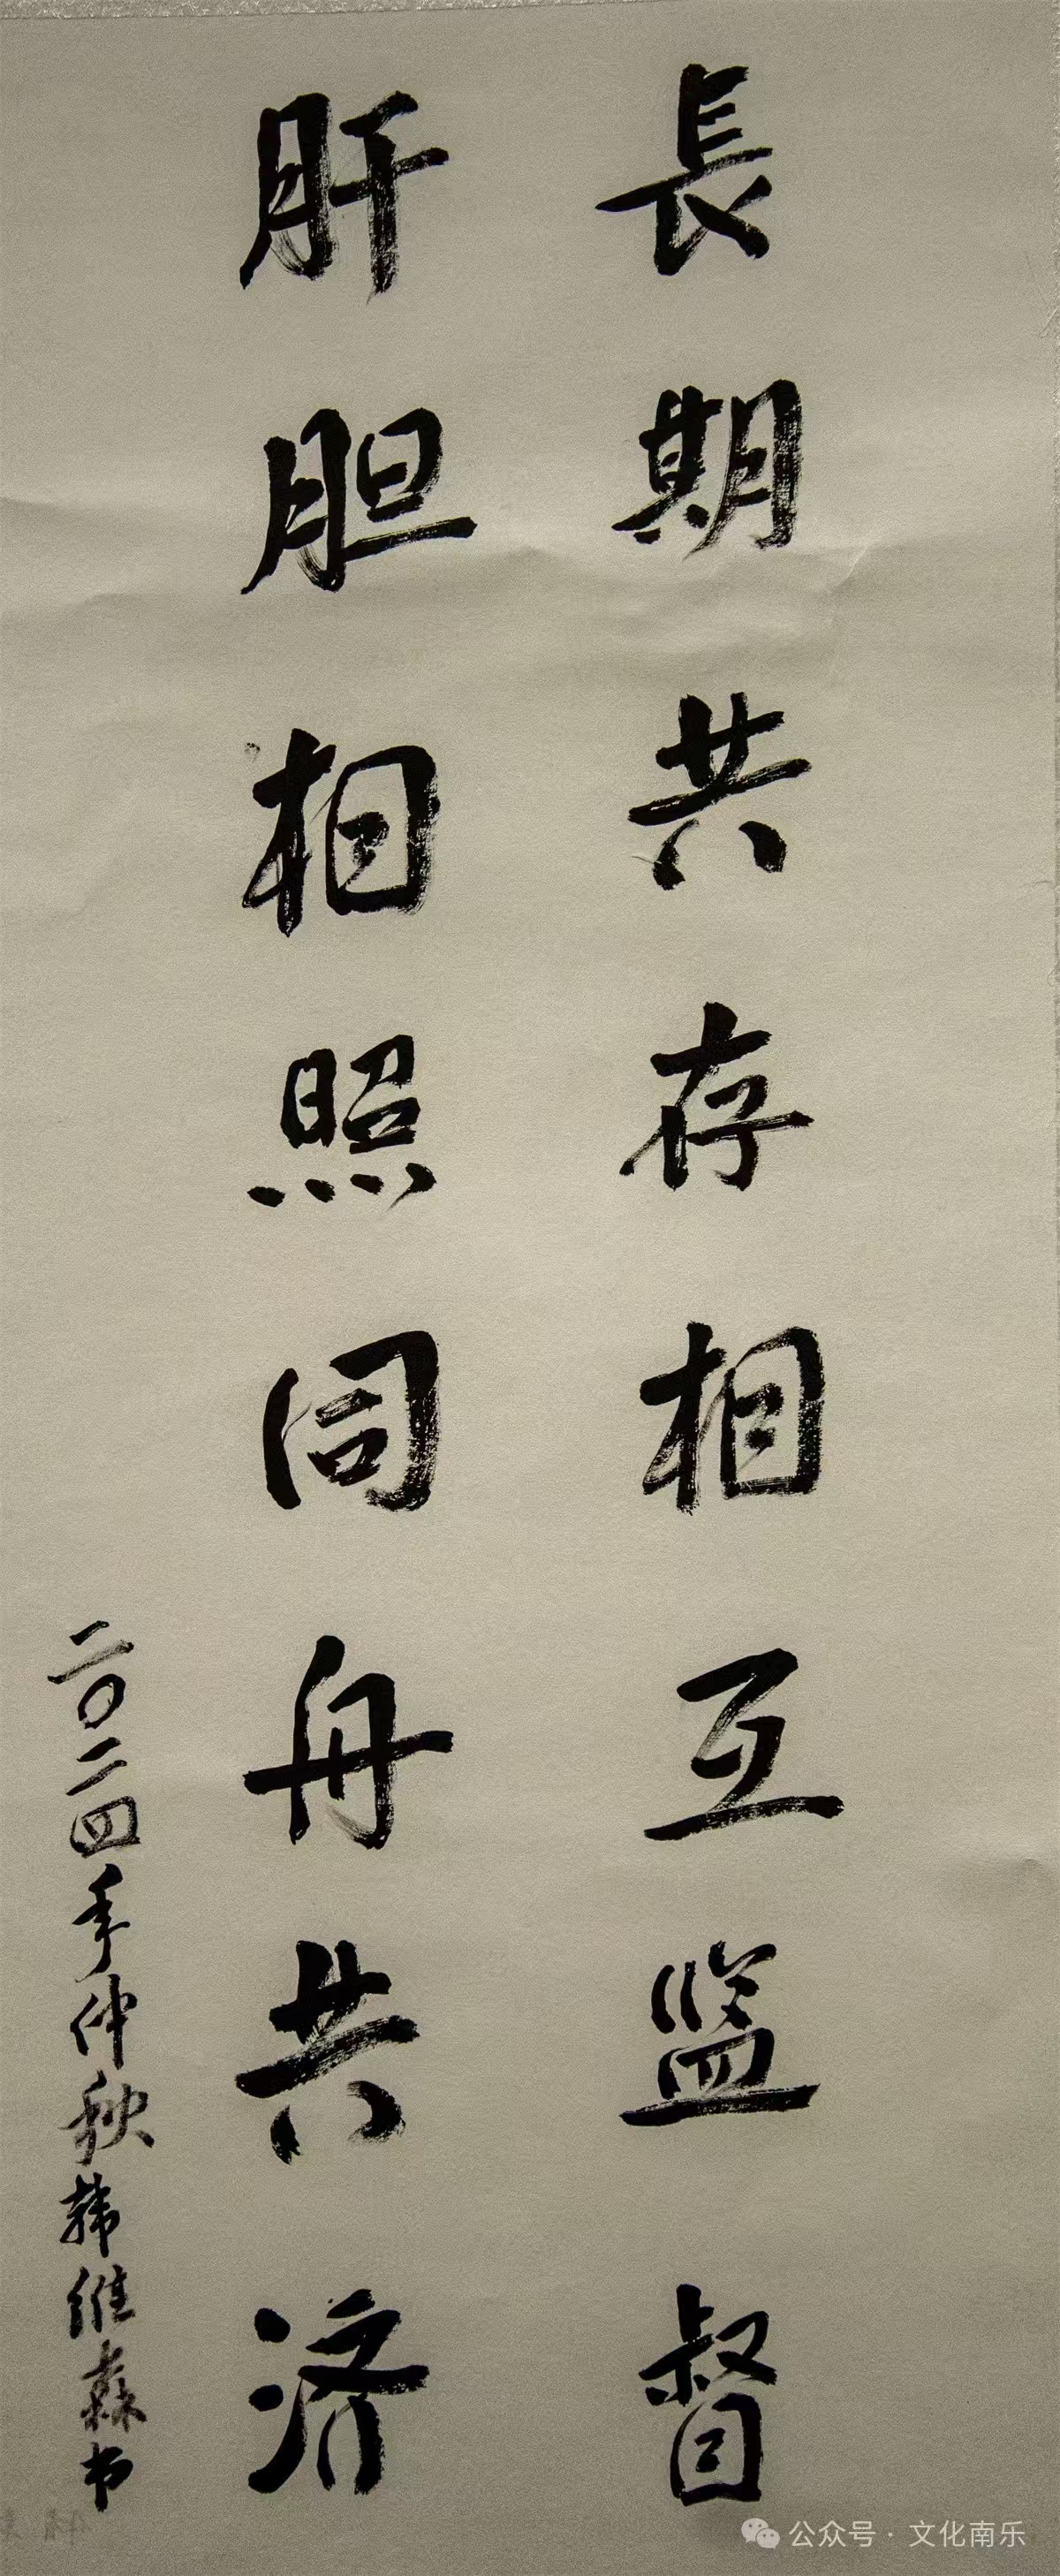 長期共存相互监督
肝胆相照同舟共济
二〇二四年仲秋韩维森书
公众号·文化南乐